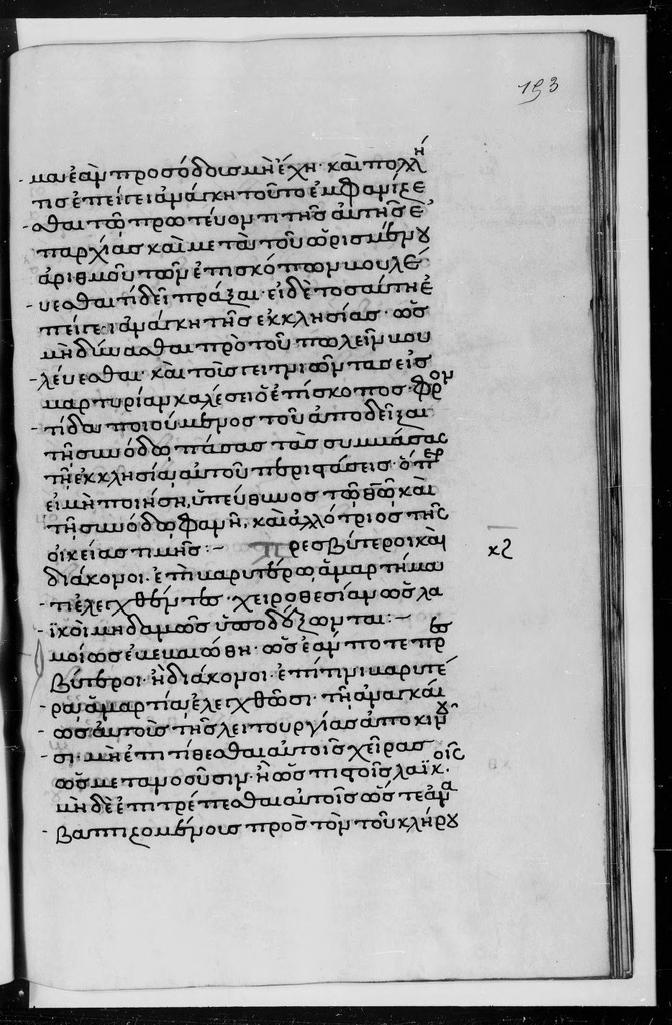 193
μαι ἐὰν προσόδους μὴ ἔχη· καὶ πολλὴ
τις ἐπείγει ἀνάγκη τοῦτο ἐμφανίζε
σθαι τῶ πρωτεύοντι τῆς αὐτῆς ἐ
παρχίας καὶ μετὰ τοῦ ὡρισμένου
ἀριθμοῦ τῶν ἐπισκόπων βουλέ
υεσθαι τί δεῖ πράξαι· εἰ δὲ τοσαύτη ἐ
πείγει ἀνάγκη τῆς ἐκκλησίας· ὡς
μὴ δύνασθαι πρὸ τοῦ πωλεῖν βου
λεύεσθαι· κἂν τοὺς γειτνιῶντας εἰς
μαρτυρίαν καλέσει ὁ ἐπίσκοπος· φρον
τίδα ποιούμενος τοῦ ἀποδεῖξαι
τῆ συνόδω πάσας τὰς συμβάσας
τῆ ἐκκλησία αὐτοῦ περιστάσεις· ὅπερ
εἰ μὴ ποιήση, ὑπεύθυνος τῶ θῶ καὶ
τῆ συνόδω φανῆ, καὶ ἀλλότριος τῆς
οἰκείας τιμῆς:— Πρεσβύτεροι καὶ κζ
διάκονοι· ἐπὶ βαρυτέρω ἁμαρτήμα
τι ἐλεγχθέντες· χειροθεσίαν ὡς λα
ϊκοὶ μηδαμῶς ὑποδέξωνται:—
μοίως ἐβεβαιώθη· ὡς ἐάν ποτε πρεσ
βύτεροι· ἢ διάκονοι· ἐπί τινι βαρυτέ
ρα ἁμαρτία ἐλεγχθῶσι· τῆ ἀναγκαί
ως αὐτοὺς τῆς λειτουργίας ἀποκινού
σι· μὴ ἐπιτίθεσθαι αὐτοῖς χεῖρας
ὡς μετανοοῦσιν· ἢ ὡς πιστοῖς λαϊκοῖς·
μηδὲ ἐπιτρέπεσθαι αὐτοῖς ὥστε ἀνα
βαπτιζομένους πρὸς τὸν τοῦ κλήρου